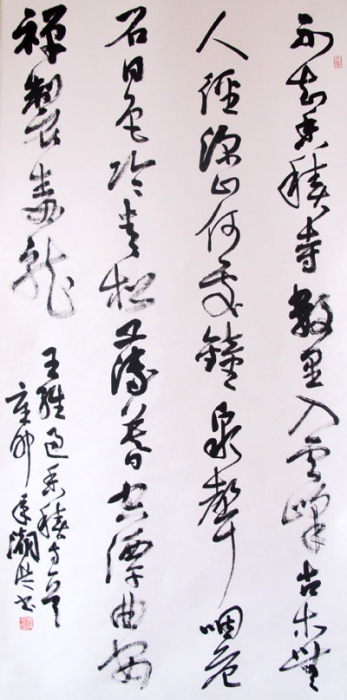 不知香積寺數里入雲峰古木無
人徑深山何處鐘泉聲咽危
石日色冷青松薄暮空潭曲安
禪製毒龍
王維過香積寺
辛卯